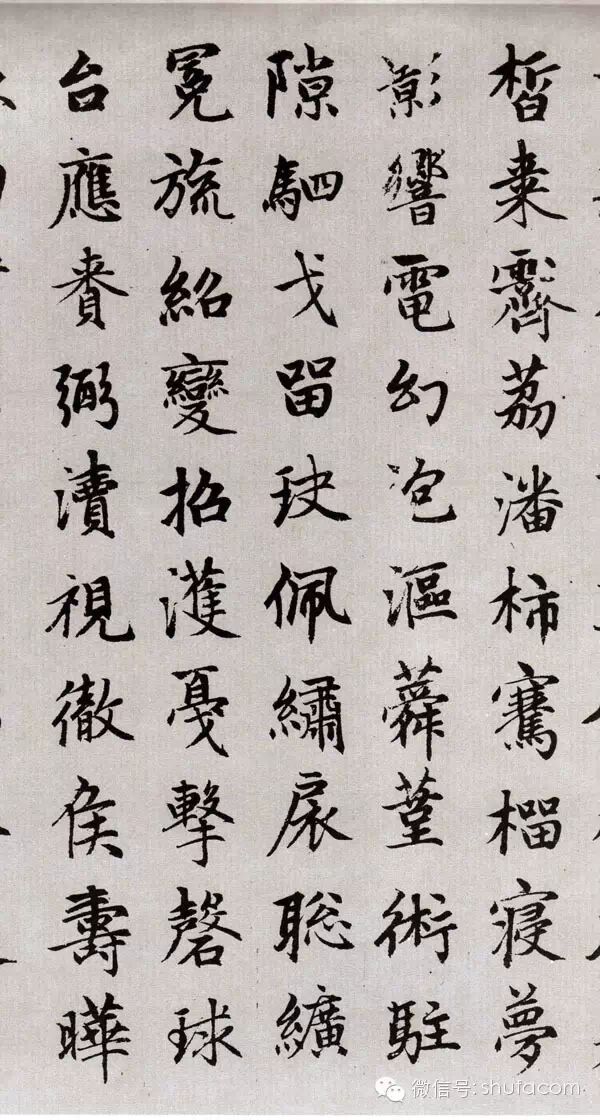 皙棗霽荔潘柿騫榴寢夢
影響電幻泡漚蕣堇術駐
隙駟弋留玦佩繡扆聰纊
冕旒紹變招濩戛擊磬球
台應賚弼瀆視徹侯壽曄
微信号: shufacom